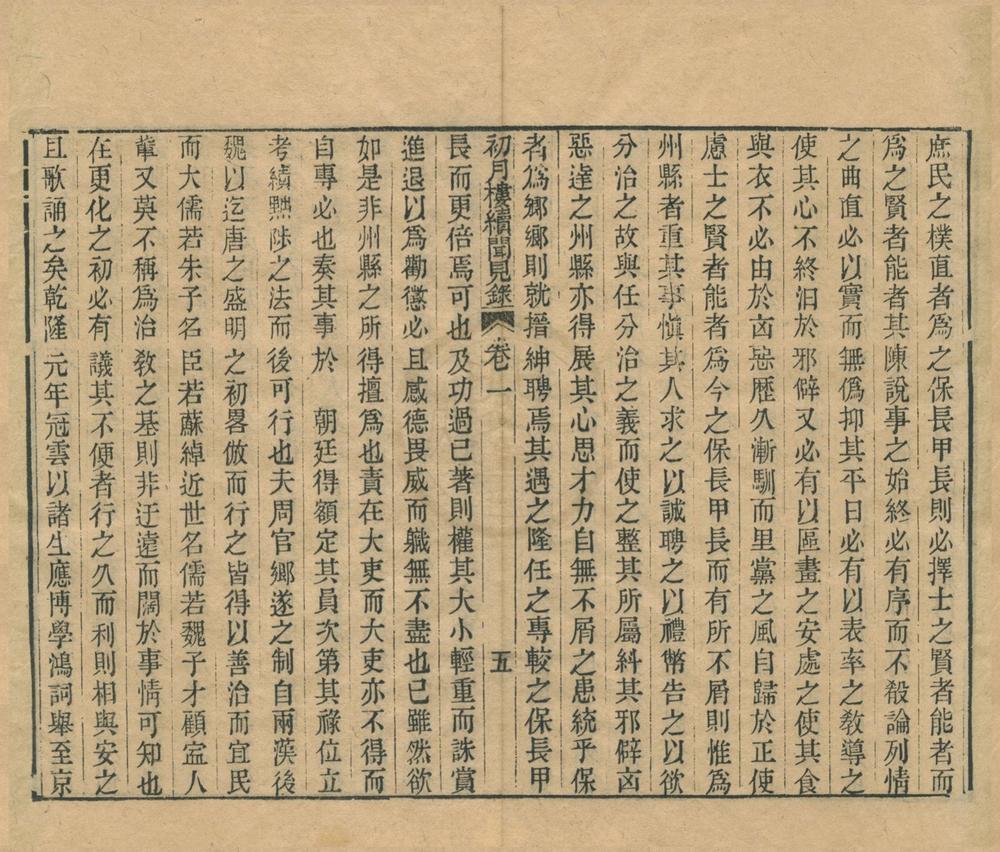 庶民之樸直者爲之保長甲長則必擇士之賢者能者而
爲之賢者能者其陳說事之始終必有序而不殺論列情
之曲直必以實而無僞抑其平日必有以表率之敎導之
使其心不終汩於邪僻又必有以區畫之安處之使其食
與衣不必由於㐫惡歷久漸馴而里黨之風自歸於正使
慮士之賢者能者爲今之保長甲長而有所不屑則惟爲
州縣者重其事愼其人求之以誠聘之以禮幣告之以欲
分治之故與任分治之義而使之整其所屬糾其邪僻㐫
惡達之州縣亦得展其心思才力自無不屑之患統乎保
者爲鄉鄉則就搢紳聘焉其遇之隆任之專較之保長甲
初月樓續聞見錄 卷一 五
長而更倍焉可也及功過已著則權其大小輕重而誅賞
進退以爲勸懲必且感德畏威而職無不盡也已雖然欲
如是非州縣之所得擅爲也責在大吏而大吏亦不得而
自專必也奏其事於 朝廷得額定其員次第其祿位立
考績黜陟之法而後可行也夫周官鄉遂之制自兩漢後
魏以迄唐之盛明之初畧倣而行之皆得以善治而宜民
而大儒若朱子名臣若蘇綽近世名儒若魏子才顧寍人
輩又莫不稱爲治敎之基則非迂遠而闊於事情可知也
在更化之初必有議其不便者行之久而利則相與安之
且歌誦之矣乾隆元年冠雲以諸生應博學鴻詞舉至京